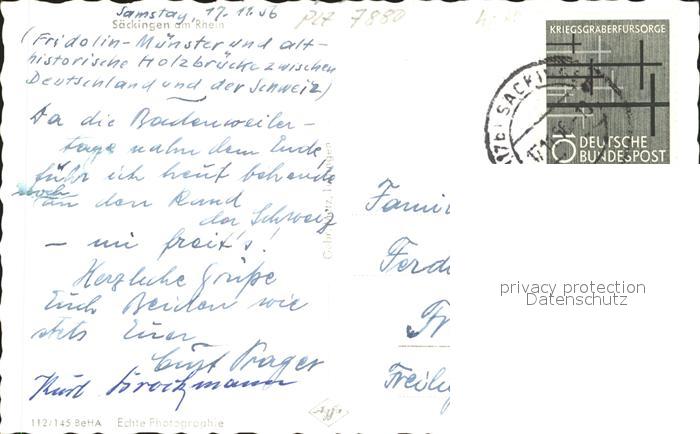 Samstag, 17.11.56
PLZ 7880
Säckingen am Rhein
(Fridolin-Münster und alt-
historische Holzbrücke zwischen
Deutschland und der Schweiz)
Da die Badenweiler-
tage nahn dem Ende
führ ich heut behende
noch an den Rand
der Schweiz
– mi freit's!
Herzliche Grüße
Euch Beiden wie
stets Euer
Prager
Kurt Brockmann
112/145 BeHA Echte Photographie
KRIEGSGRÄBERFÜRSORGE
10 DEUTSCHE
BUNDESPOST
(17b) SÄCKIN
17.11.56
Famil
Ferd
Fr
Freib
privacy protection
Datenschutz